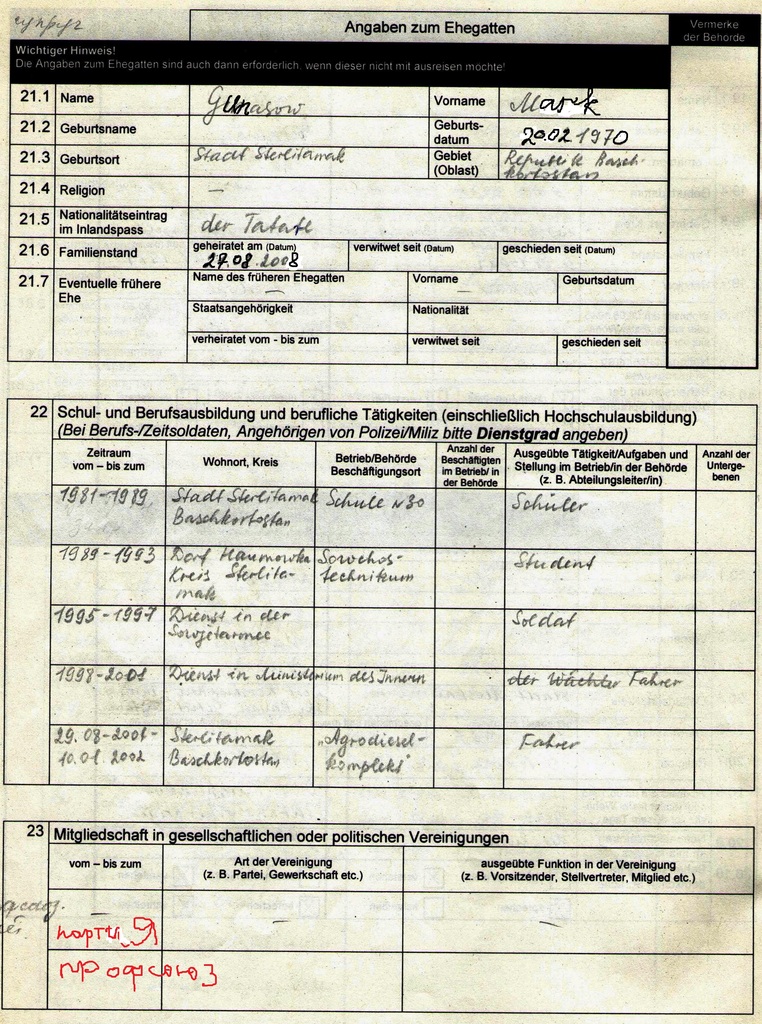 супруг
Angaben zum Ehegatten
Vermerke
der Behörde
Wichtiger Hinweis!
Die Angaben zum Ehegatten sind auch dann erforderlich, wenn dieser nicht mit ausreisen möchte!
21.1 Name Vorname Marek
21.2 Geburtsname Geburts-
datum 20.02 1970
21.3 Geburtsort Stadt Sterlitamak Gebiet
(Oblast) Republik Basch-
kortostan
21.4 Religion —
21.5 Nationalitätseintrag
im Inlandspass der Tatare
21.6 Familienstand geheiratet am (Datum) verwitwet seit (Datum) geschieden seit (Datum)
27.08.2008
21.7 Eventuelle frühere
Ehe Name des früheren Ehegatten Vorname Geburtsdatum
— —
Staatsangehörigkeit Nationalität
verheiratet vom - bis zum verwitwet seit geschieden seit
22 Schul- und Berufsausbildung und berufliche Tätigkeiten (einschließlich Hochschulausbildung)
(Bei Berufs-/Zeitsoldaten, Angehörigen von Polizei/Miliz bitte Dienstgrad angeben)
Zeitraum
vom – bis zum
Wohnort, Kreis
Betrieb/Behörde
Beschäftigungsort
Anzahl der
Beschäftigten
im Betrieb/ in
der Behörde
Ausgeübte Tätigkeit/Aufgaben und
Stellung im Betrieb/in der Behörde
(z. B. Abteilungsleiter/in)
Anzahl der
Unterge-
benen
1981-1989 Stadt Sterlitamak Schule N30 Schüler
Baschkortostan
1989-1993 Dorf Naumowka Sowchos- Student
Kreis Sterlita- technikum
mak
1995-1997 Dienst in der Soldat
Sowjetarmee
1998-2001 Dienst in Ministerium des Innern der Wächter Fahrer
29.08-2001- Sterlitamak „Agrodiesel- Fahrer
10.01.2002 Baschkortostan kompleks"
23 Mitgliedschaft in gesellschaftlichen oder politischen Vereinigungen
vom – bis zum
Art der Vereinigung
(z. B. Partei, Gewerkschaft etc.)
ausgeübte Funktion in der Vereinigung
(z. B. Vorsitzender, Stellvertreter, Mitglied etc.)
— — —
партия
профсоюз